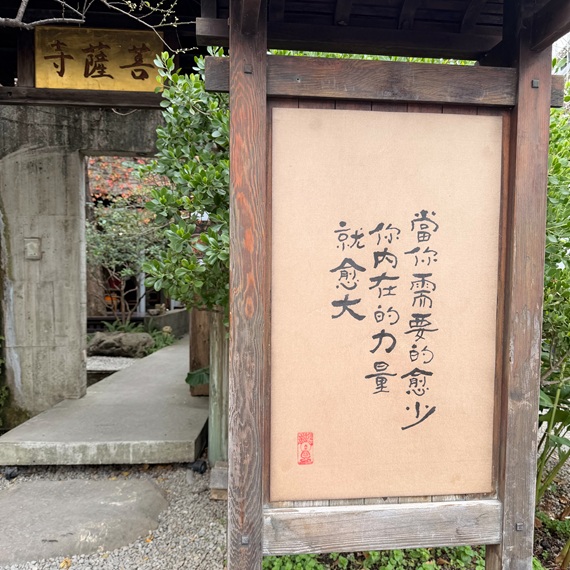 菩薩寺
當你需要的愈少
你內在的力量
就愈大